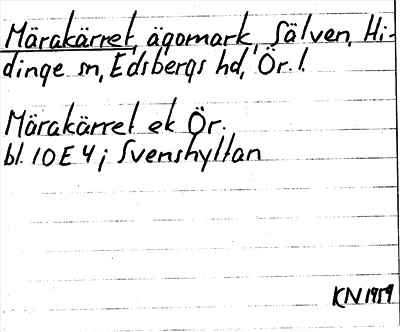 Märakärret, ägomark, Sälven, Hi-
dinge sn, Edsbergs hd, Ör. l.
Märakärret ek Ör.
bl. 10E 4j Svenshyttan
KN 1959